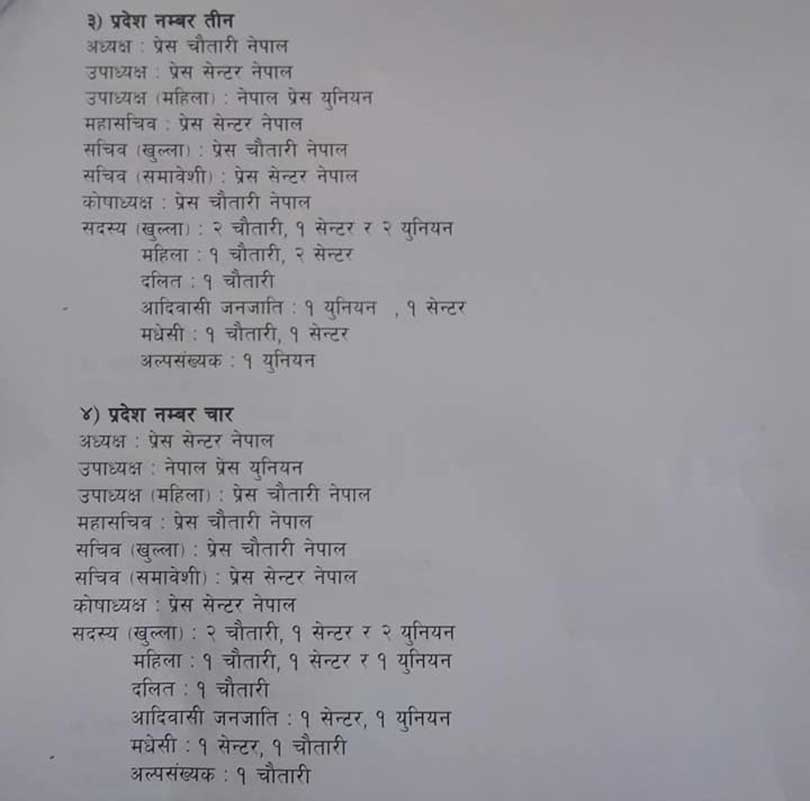 ३) प्रदेश नम्बर तीन
अध्यक्ष : प्रेस चौतारी नेपाल
उपाध्यक्ष : प्रेस सेन्टर नेपाल
उपाध्यक्ष (महिला) : नेपाल प्रेस युनियन
महासचिव : प्रेस सेन्टर नेपाल
सचिव (खुल्ला) : प्रेस चौतारी नेपाल
सचिव (समावेशी) : प्रेस सेन्टर नेपाल
कोषाध्यक्ष : प्रेस चौतारी नेपाल
सदस्य (खुल्ला) : २ चौतारी, १ सेन्टर र २ युनियन
महिला : १ चौतारी, २ सेन्टर
दलित : १ चौतारी
आदिवासी जनजाति : १ युनियन , १ सेन्टर
मधेसी : १ चौतारी, १ सेन्टर
अल्पसंख्यक : १ युनियन
४) प्रदेश नम्बर चार
अध्यक्ष : प्रेस सेन्टर नेपाल
उपाध्यक्ष : नेपाल प्रेस युनियन
उपाध्यक्ष (महिला) : प्रेस चौतारी नेपाल
महासचिव : प्रेस चौतारी नेपाल
सचिव (खुल्ला) : प्रेस चौतारी नेपाल
सचिव (समावेशी) : प्रेस सेन्टर नेपाल
कोषाध्यक्ष : प्रेस सेन्टर नेपाल
सदस्य (खुल्ला) : २ चौतारी, १ सेन्टर र २ युनियन
महिला : १ चौतारी, १ सेन्टर र १ युनियन
दलित : १ चौतारी
आदिवासी जनजाति : १ सेन्टर, १ युनियन
मधेसी : १ सेन्टर, १ चौतारी
अल्पसंख्यक : १ चौतारी